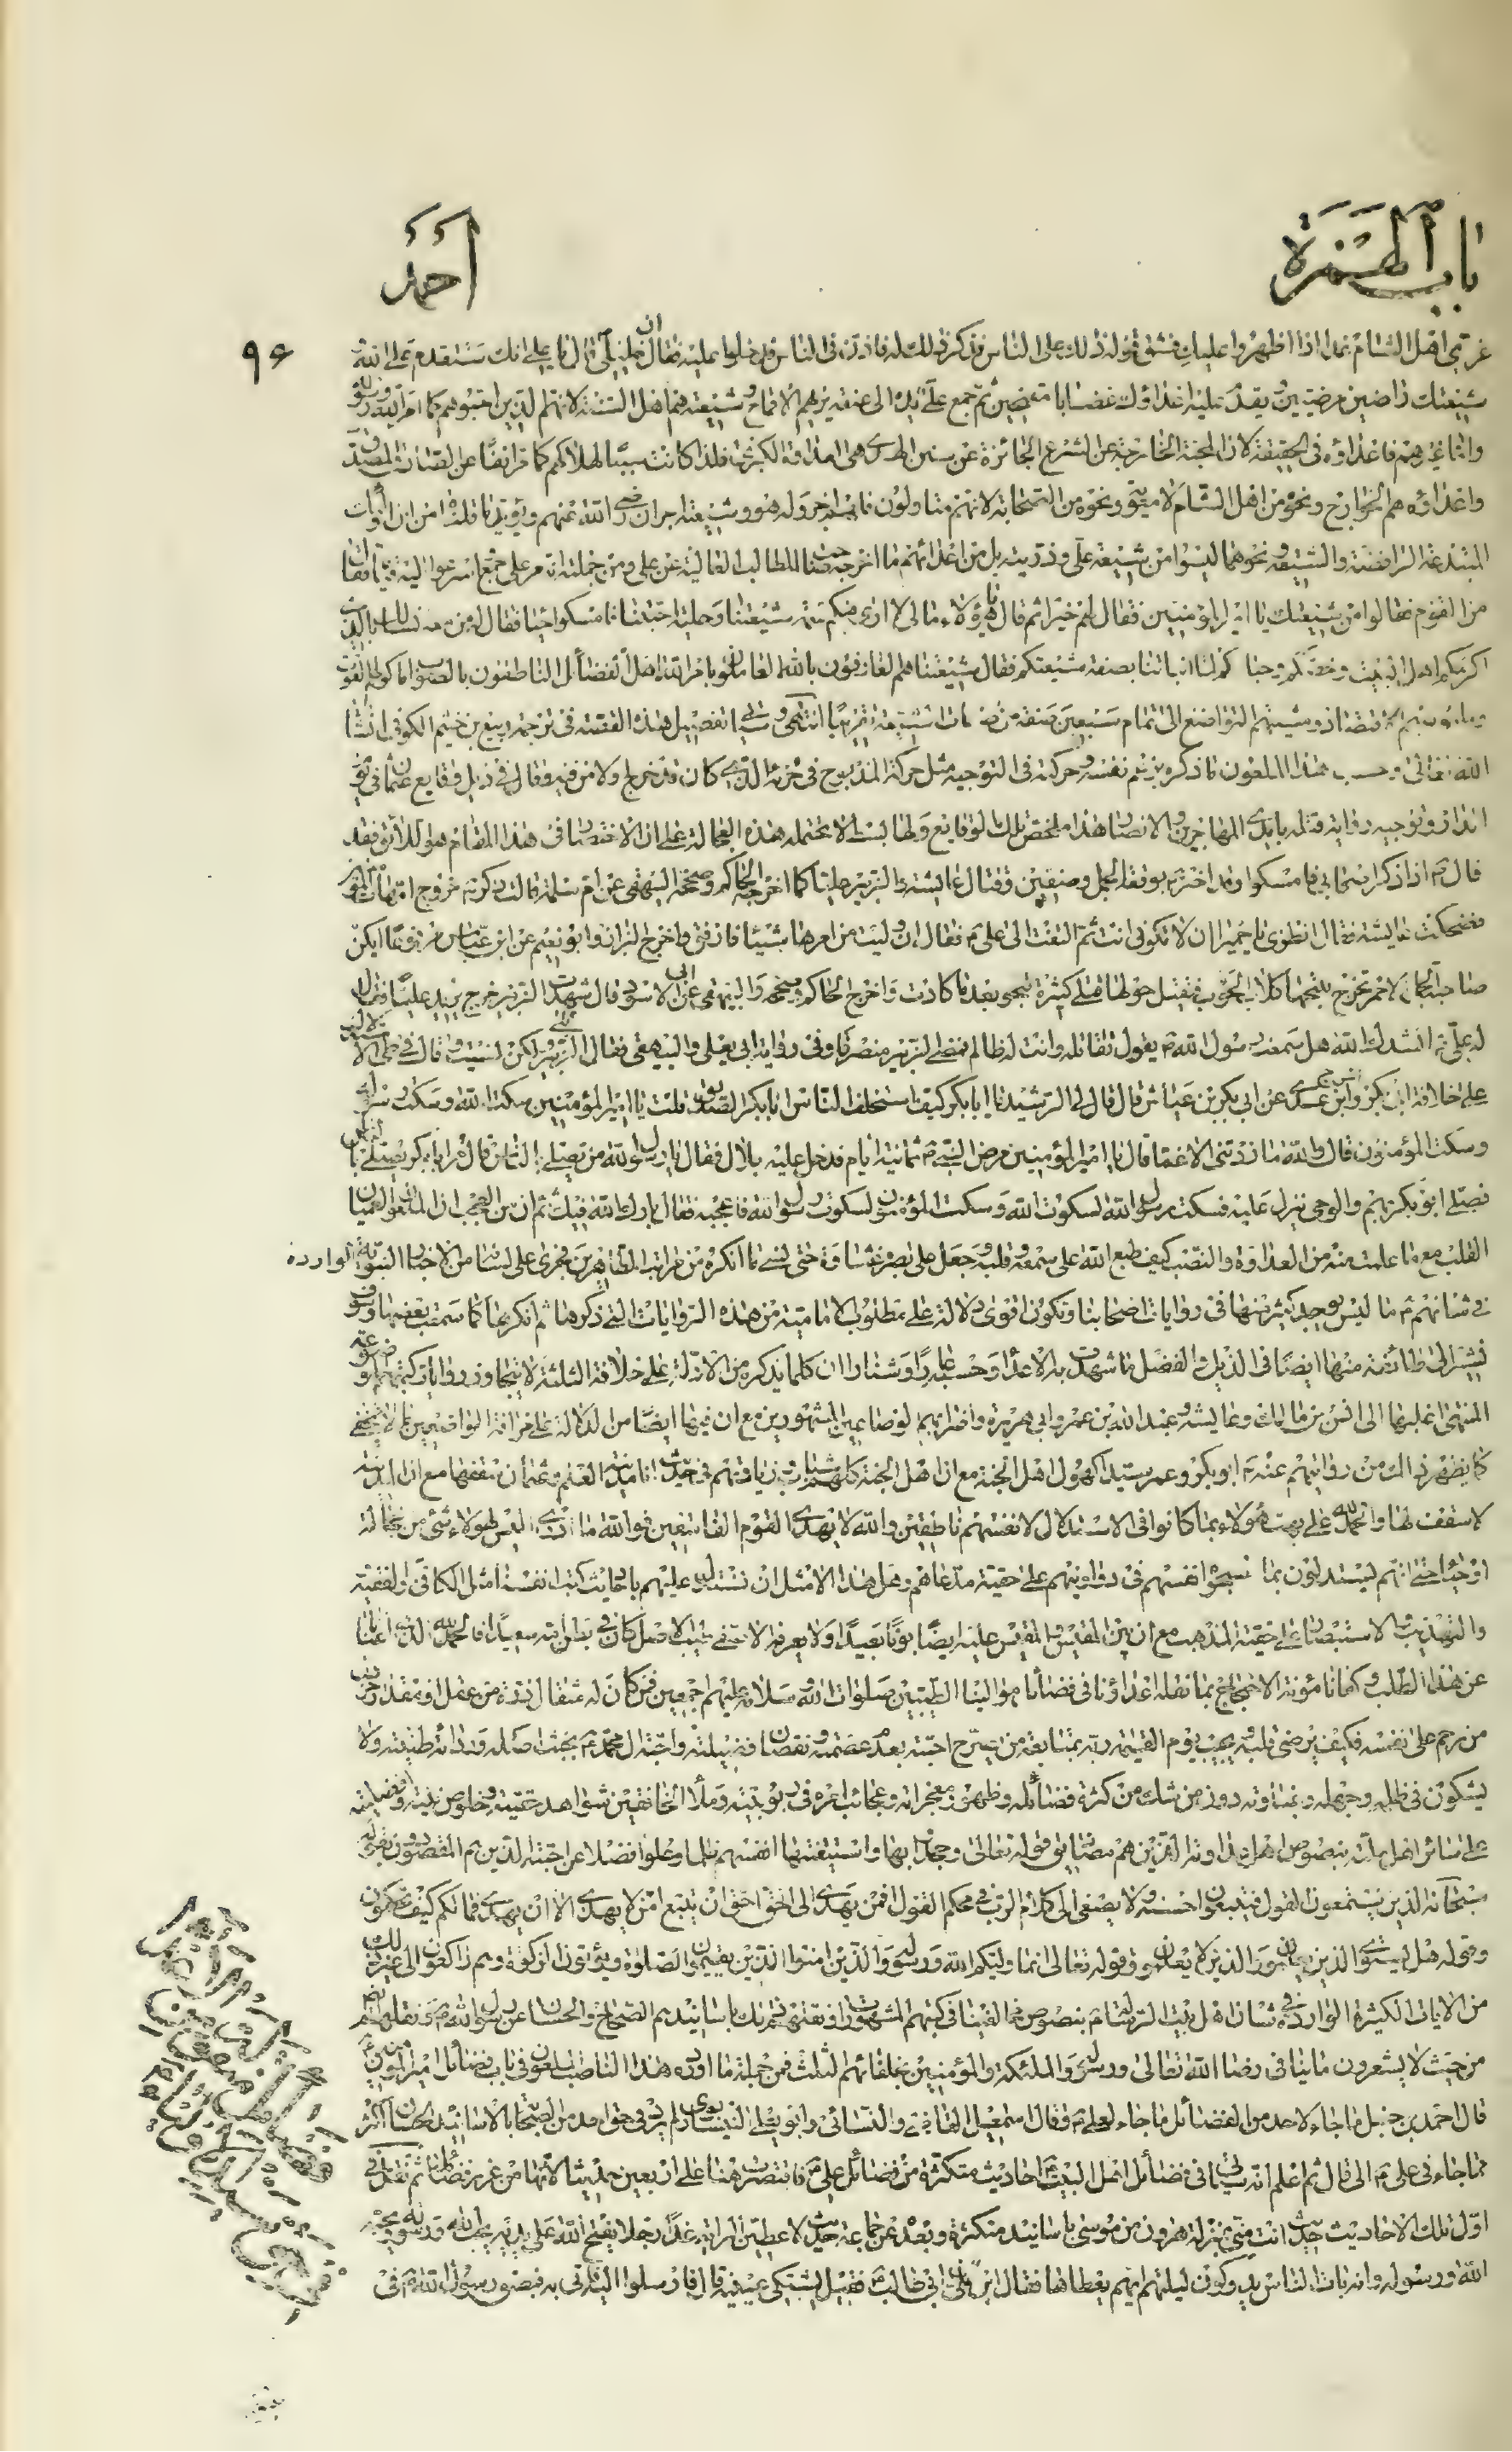 باب الهمزة
أحمد
٩٦
غرتى اهل الشام غدا اذا ظهروا عليك فشق قوله ذلك على الناس فذكر ذلك له فاذن فى الناس فدخلوا عليه فقال ان خليلى قال يا على انك ستقدم على الله
شيعتك راضين مرضيين ويقدم عليه اعداؤك غضابا مقمحين ثم جمع على يده الى عنقه يريهم الاقماح وشيعته هم اهل السنة لانهم الذين احبوهم كما امر الله ورسوله
واما غيرهم فاعداؤه فى الحقيقة لان المحبة الخارجة عن الشرع الجائرة عن سنن الهدى هى العداوة الكبرى فلذا كانت سببا لهلاكهم كما مر انفا عن الصادق المصدوق
واعداؤه هم الخوارج ونحوهم من اهل الشام لا معوية ونحوه من الصحابة لانهم متاولون فلهم اجر وله هو وشيعته اجران رضى الله عنهم ويؤيد ما قلناه من ان اولئك
المبتدعة الرافضة والشيعة ونحوهما ليسوا من شيعة على وذريته بل من اعدائهم ما اخرجه صاحب المطالب العالية عن على ومن جملته انه مر على جمع فاسرعوا اليه قياما فقال
من القوم فقالوا من شيعتك يا امير المؤمنين فقال لهم خيرا ثم قال يا هؤلاء مالى لا ارى فيكم سمة شيعتنا وحلية احبتنا فامسكوا حياء فقال له من معه نسالك بالذى
اكرمكم اهل البيت وخصكم وحباكم لما انباتنا بصفة شيعتكم فقال شيعتنا هم العارفون بالله العاملون بامر الله اهل الفضائل الناطقون بالصواب ماكولهم القوت
وملبوسهم الاقتصاد ومشيهم التواضع الى تمام سبعين صفة من صفات شيعته تقريبا انتهى وسياتى تفصيل هذه القصة فى ترجمة ربيع بن خثيم الكوفى انشا
الله تعالى وحسب هذا الملعون ما ذكره بزعم نفسه وحركته فى التوجيه مثل حركة المذبوح فى خرئه الذى كان قد خرج ولا من فيه وقال فى ذيل وقايع عثمان فى
وتوجيه رواية قتله بايدى المهاجرين والانصار هذا ملخص تلك الوقايع ولها بسط لا يحتمله هذه العجالة على ان الاختصار فى هذا المقام هو اللائق فقد
قال ص اذا ذكر اصحابى فامسكوا وقد اخبر ص بوقعة الجمل وصفين وقتال عايشة والزبير عليا كما اخرجه الحاكم وصححه البيهقى عن ام سلمة قالت ذكر ص خروج امهات المؤمنين
فضحكت عايشة فقال انظرى يا حميرا ان لا تكونى انت ثم التفت الى على ع فقال ان وليت من امرها شيئا فارفق واخرج البزار وابو نعيم عن ابن عباس مرفوعا ايتكن
صاحبة الجمل الاحمر تخرج تنبحها كلاب الحوب فيقتل حولها قتلى كثيرة تنجو بعد ما كادت واخرج الحاكم وصححه والبيهقى عن ابى الاسود قال شهدت الزبير خرج يريد عليا فقال
له على ع انشدك الله هل سمعت رسول الله ص يقول تقاتله وانت له ظالم فمضى الزبير منصرفا وفى رواية ابى يعلى والبيهقى فقال الزبير بلى ولكن نسيت وقال فى
على خلافة ابى بكر واخرج ابن عدى عن ابى بكر بن عياش قال قال لى الرشيد يا ابا بكر كيف استخلف الناس ابا بكر الصديق قلت يا امير المؤمنين سكت الله وسكت رسوله
وسكت المؤمنون قال والله ما زدتنى الا عما قال يا امير المؤمنين مرض النبى ص ثمانية ايام فدخل عليه بلال فقال يا رسول الله من يصلى بالناس قال مر ابا بكر يصلى بالناس
فصلى ابو بكر بهم والوحى ينزل عليه فسكت رسول الله لسكوت الله وسكت المؤمنون لسكوت رسول الله فاعجبه فقال بارك الله فيك ثم ان من العجب ان الملعون هيان
القلب مع ما علمت منه من العداوة والنصب كيف طبع الله على سمعه وقلبه وجعل على بصره غشاوة حتى نسى ما انكره من مراتب الطاهرين فجرى على لسانه من الاخبار النبوية الواردة
فى شانهم ع ما ليس يوجد كثير منها فى روايات اصحابنا وتكون اقوى دلالة على مطلوب الامامية من هذه الروايات التى ذكرها ثم انكرها كما سمعت بعضها وسوف
نشير الى طائفة منها ايضا فى الذيل والفضل ما شهدت به الاعداء وحسبه عارا وشنارا ان كلما يذكره من الادلة على خلافة الثلثة لا يتجاوز روايات كتبهم الموضوعة
المنتهى اغلبها الى انس بن مالك وعايشة وعبد الله بن عمر وابى هريرة واضرابهم الوضاعين المشهورين مع ان فيها ايضا من الدلالة على خرافة الواضعين ما لا يخفى
كما يظهر ذلك من روايتهم عنه ص ابو بكر وعمر سيدا كهول اهل الجنة مع ان اهل الجنة كلهم شباب وزيادتهم فى حديث انا مدينة العلم وعثمان سقفها مع ان المدينة
لا سقف لها والحمد لله على بهت هؤلاء بما كانوا فى الاستدلال لانفسهم ناطقين والله لا يهدى القوم الفاسقين فوالله ما ادرى اليس لهؤلاء شى من خجالة
او حياء حتى انهم ليستدلون بما نسجوا انفسهم فى دواوينهم على حقية مدعاهم وهل هذا الا مثل ان نستدل عليهم باحاديث كتب انفسنا مثل الكافى والفقيه
والتهذيب والاستبصار على حقية المذهب مع ان بين المقيس والمقيس عليه ايضا بونا بعيدا ولا يعرفه الا نقى طيب الاصل كان فى بطن امه سعيدا فالحمد لله الذى اغنانا
عن هذا الطلب وكفانا مؤنة الاحتجاج بما نقله اعداؤنا فى فضائل موالينا الطيبين صلوات الله وسلامه عليهم اجمعين فمن كان له مثقال ذرة من عقل او مقدار
من رحم على نفسه فكيف يرضى قلبه يجيب يوم القيمة ربه بمتابعة من يصرح احبته بعدم عصمته ونقصان فضيلته واحبة ال محمد ع بخبث اصله ورذائة طينته ولا
يشكون فى ظلمه وجهله وغباوته دون من شك من كثرة فضائله وظهور معجزاته وعجائب امره فى ربوبيته وملا الخافقين شواهد حقيته وخلوص نيته وفضيلته
على سائر اهل ملته بنصوص اهل عداوته الذين هم مصاديق قوله تعالى وجحدوا بها واستيقنتها انفسهم ظلما وعلوا فضلا عن احبته الذين هم المقصودون بقوله
سبحانه الذين يستمعون القول فيتبعون احسنه ولا يصغى الى كلام الرب فى محكم القول افمن يهدى الى الحق احق ان يتبع امن لا يهدى الا ان يهدى فمالكم كيف تحكمون
وقوله هل يستوى الذين يعلمون والذين لا يعلمون وقوله تعالى انما وليكم الله ورسوله والذين امنوا الذين يقيمون الصلوة ويؤتون الزكوة وهم راكعون الى غير ذلك
من الايات الكثيرة الواردة فى شان اهل بيت الرسالة ع بنصوص مخالفينا فى كتبهم المشهورة باسانيدهم الصحاح والحسان عن رسول الله ص
من حيث لا يشعرون ما ينافى رضا الله تعالى ورسوله والملئكة والمؤمنين بخلفائهم الثلث فمن جملة ما اورده هذا الناصب الملعون فى باب فضائل امير المؤمنين
قال احمد بن حنبل ما جاء لاحد من الفضائل ما جاء لعلى ع وقال اسمعيل القاضى والنسائى وابو على النيسابورى لم يرد فى حق احد من الصحابة بالاسانيد الحسان اكثر
مما جاء فى على ع الى ان قال ثم اعلم انه سياتى فى فضائل اهل البيت ع احاديث متكثرة من فضائل على ع فاقتصرت هنا على اربعين حديثا لانها من غرر فضائله ثم نقل فى
اول تلك الاحاديث حديث انت منى بمنزلة هرون من موسى باسانيد متكثرة وبعده عن جماعة حديث لاعطين الراية غدا رجلا يفتح الله على يديه يحب الله ورسوله ويحبه
الله ورسوله وانه بات الناس يدوكون ليلتهم ايهم يعطاها فقال اين على بن ابى طالب ع فقيل يشتكى عينيه قال فارسلوا اليه فاتى به فبصق رسول الله ص فى